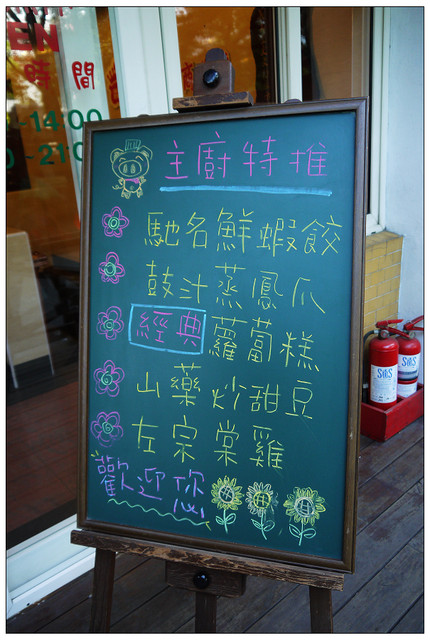 間
-14:00
主廚特推
馳名鮮蝦餃
鼓汁蒸鳳爪
經典蘿蔔糕
山藥炒甜豆
左宗棠雞
歡迎您